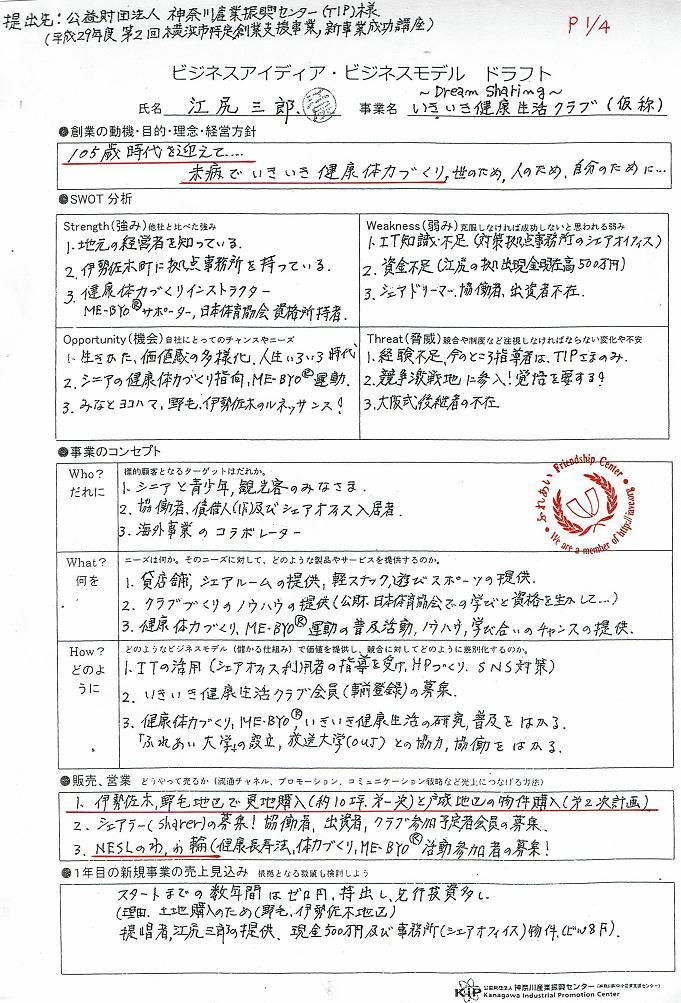 提出先:公益財団法人 神奈川産業振興センター(TIP)様
(平成29年度 第2回 横浜市特定創業支援事業,新事業成功講座)
P 1/4
ビジネスアイディア・ビジネスモデル ドラフト
~Dream Sharing~
氏名 江尻三郎. 事業名 いきいき健康生活クラブ(仮称)
●創業の動機・目的・理念・経営方針
105歳時代を迎えて....
未病でいきいき健康体力づくり,世のため,人のため、自分のために...
●SWOT 分析
Strength(強み)他社と比べた強み
1.地元の経営者を知っている.
2.伊勢佐木町に拠点事務所を持っている.
3.健康体力づくりインストラクター
ME-BYO®サポーター,日本体育協会資格所持者.
Weakness(弱み)克服しなければ成功しないと思われる弱み
1.IT知識不足(対策拠点事務所のシェアオフィス)
2.資金不足(江尻の拠出現金現在高500万円)
3.シェアドリーマー、協働者、出資者不在.
Opportunity(機会)自社にとってのチャンスやニーズ
1.生きかた、価値感の多様化,人生いろいろ時代
2.シニアの健康体力づくり指向,ME-BYO®運動.
3.みなとヨコハマ,野毛,伊勢佐木のルネッサンス!
Threat(脅威)競合や制度など注視しなければならない変化や不安
1.経験不足,今のところ指導者は、TIPさまのみ.
2.競争激戦地に参入!覚悟を要する?
3.大阪式後継者の不在
●事業のコンセプト
Who?
だれに
標的顧客となるターゲットはだれか。
1.シニアと青少年,観光客のみなさま.
2.協働者、賃借人(リ)及びシェアオフィス入居者.
3.海外事業のコラボレーター
ふれあい Friendship Center
We are a member of http://
What?
何を
ニーズは何か。そのニーズに対して、どのような製品やサービスを提供するのか。
1.貸店舗,シェアルームの提供,軽スナック,遊びスポーツの提供.
2.クラブづくりのノウハウの提供(公財.日本体育協会での学びと資格を生かして...)
3.健康体力づくり,ME-BYO®運動の普及活動,ノウハウ,学び合いのチャンスの提供.
How?
どのよ
うに
どのようなビジネスモデル(儲かる仕組み)で価値を提供し、競合に対してどのように差別化するのか。
1.ITの活用(シェアオフィス利用者の指導を受け,HPづくり、SNS対策)
2.いきいき健康生活クラブ会員(事前登録)の募集.
3.健康体力づくり,ME-BYO®,いきいき健康生活の研究,普及をはかる.
「ふれあい大学」の設立,放送大学(OUJ)との協力,協働をはかる.
●販売、営業 どうやって売るか(流通チャネル、プロモーション、コミュニケーション戦略など売上につなげる方法)
1.伊勢佐木,野毛地区で更地購入(約10坪.第一次)と戸成地区の物件購入(第2次計画)
2.シェアラー(sharer)の募集!協働者,出資者,クラブ参加予定者会員の募集.
3.NESLのわ,わ 輪(健康長寿法,体力づくり,ME-BYO®活動参加者の募集!
●1年目の新規事業の売上見込み 根拠となる数値も検討しよう
スタートまでの数年間はゼロ円,持出し,先行投資多し.
(理由.土地購入のため(野毛,伊勢佐木地区)
提唱者,江尻三郎の提供、現金500万円及び事務所(シェアオフィス)物件.(ビル8F).
KIP 公益財団法人 神奈川産業振興センター(神奈川県中小企業支援センター)
Kanagawa Industrial Promotion Center